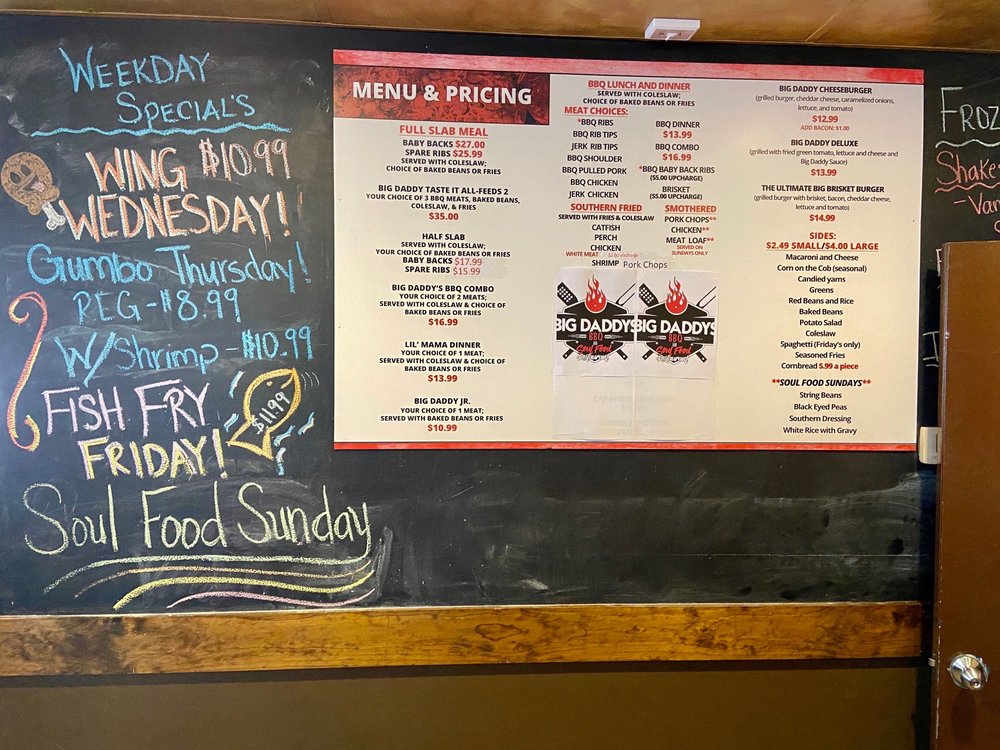 WEEKDAY
SPECIAL'S
WING $10.99
WEDNESDAY!
Gumbo Thursday!
REG-$8.99
W/Shrimp-$10.99
FISH FRY
FRIDAY!
$11.99
Soul Food Sunday
MENU & PRICING
FULL SLAB MEAL
BABY BACKS $27.00
SPARE RIBS $25.99
SERVED WITH COLESLAW;
CHOICE OF BAKED BEANS OR FRIES
BIG DADDY TASTE IT ALL-FEEDS 2
YOUR CHOICE OF 3 BBQ MEATS, BAKED BEANS,
COLESLAW, & FRIES
$35.00
HALF SLAB
SERVED WITH COLESLAW;
YOUR CHOICE OF BAKED BEANS OR FRIES
BABY BACKS $17.99
SPARE RIBS $15.99
BIG DADDY'S BBQ COMBO
YOUR CHOICE OF 2 MEATS;
SERVED WITH COLESLAW & CHOICE OF
BAKED BEANS OR FRIES
$16.99
LIL' MAMA DINNER
YOUR CHOICE OF 1 MEAT;
SERVED WITH COLESLAW & CHOICE OF
BAKED BEANS OR FRIES
$13.99
BIG DADDY JR.
YOUR CHOICE OF 1 MEAT;
SERVED WITH BAKED BEANS OR FRIES
$10.99
BBQ LUNCH AND DINNER
SERVED WITH COLESLAW;
CHOICE OF BAKED BEANS OR FRIES
MEAT CHOICES:
*BBQ RIBS
BBQ RIB TIPS
JERK RIB TIPS
BBQ SHOULDER
BBQ PULLED PORK
BBQ CHICKEN
JERK CHICKEN
BBQ DINNER
$13.99
BBQ COMBO
$16.99
*BBQ BABY BACK RIBS
($5.00 UPCHARGE)
BRISKET
($5.00 UPCHARGE)
SOUTHERN FRIED
SERVED WITH FRIES & COLESLAW
CATFISH
PERCH
CHICKEN
WHITE MEAT
SHRIMP Pork Chops
SMOTHERED
PORK CHOPS**
CHICKEN**
MEAT LOAF**
SERVED ON
SUNDAYS ONLY
BIG DADDYS
BBQ
Soul Food
BIG DADDYS
BBQ
Soul Food
BIG DADDY CHEESEBURGER
(grilled burger, cheddar cheese, caramelized onions,
lettuce, and tomato)
$12.99
ADD BACON: $1.00
BIG DADDY DELUXE
(grilled with fried green tomato, lettuce and cheese and
Big Daddy Sauce)
$13.99
THE ULTIMATE BIG BRISKET BURGER
(grilled burger with brisket, bacon, cheddar cheese,
lettuce and tomato)
$14.99
SIDES:
$2.49 SMALL/$4.00 LARGE
Macaroni and Cheese
Corn on the Cob (seasonal)
Candied yarns
Greens
Red Beans and Rice
Baked Beans
Potato Salad
Coleslaw
Spaghetti (Friday's only)
Seasoned Fries
Cornbread $.99 a piece
**SOUL FOOD SUNDAYS**
String Beans
Black Eyed Peas
Southern Dressing
White Rice with Gravy
FROZ
Shake
-Van